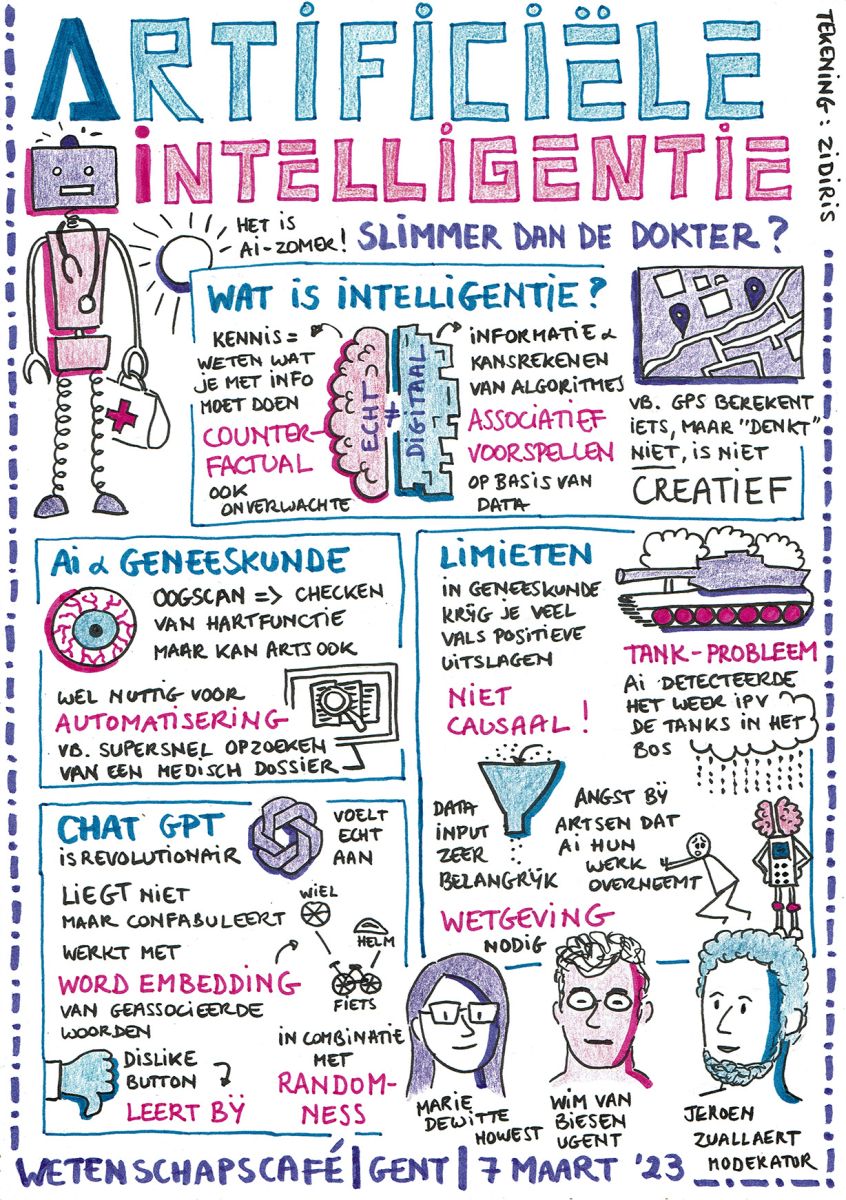 ARTIFICIËLE
INTELLIGENTIE
TEKENING: ZIDIRIS
HET IS
Ai-ZOMER!
SLIMMER DAN DE DOKTER?
WAT IS INTELLIGENTIE?
KENNIS =
WETEN WAT
JE MET INFO
MOET DOEN
COUNTER-
FACTUAL
OOK
ONVERWACHTE
ECHT
≠
DIGITAAL
INFORMATIE &
KANSREKENEN
VAN ALGORITMES
ASSOCIATIEF
VOORSPELLEN
OP BASIS VAN
DATA
VB. GPS BEREKENT
IETS, MAAR "DENKT"
NIET, IS NIET
CREATIEF
Ai & GENEESKUNDE
OOGSCAN => CHECKEN
VAN HARTFUNCTIE
MAAR KAN ARTS OOK
WEL NUTTIG VOOR
AUTOMATISERING
VB. SUPERSNEL OPZOEKEN
VAN EEN MEDISCH DOSSIER
LIMIETEN
IN GENEESKUNDE
KRIJG JE VEEL
VALS POSITIEVE
UITSLAGEN
NIET
CAUSAAL!
TANK-PROBLEEM
Ai DETECTEERDE
HET WEER IPV
DE TANKS IN HET
BOS
DATA
INPUT
ZEER
BELANGRIJK
ANGST BIJ
ARTSEN DAT
Ai HUN
WERK
OVERNEEMT
WETGEVING
NODIG
CHAT GPT
IS REVOLUTIONAIR
VOELT
ECHT
AAN
LIEGT NIET
MAAR CONFABULEERT
WERKT MET
WORD EMBEDDING
VAN GEASSOCIEERDE
WOORDEN
WIEL
HELM
FIETS
DISLIKE
BUTTON
LEERT BIJ
IN COMBINATIE
MET
RANDOM-
NESS
MARIE
DEWITTE
HOWEST
WIM VAN
BIESEN
UGENT
JEROEN
ZUALLAERT
MODERATOR
WETENSCHAPSCAFÉ | GENT | 7 MAART '23